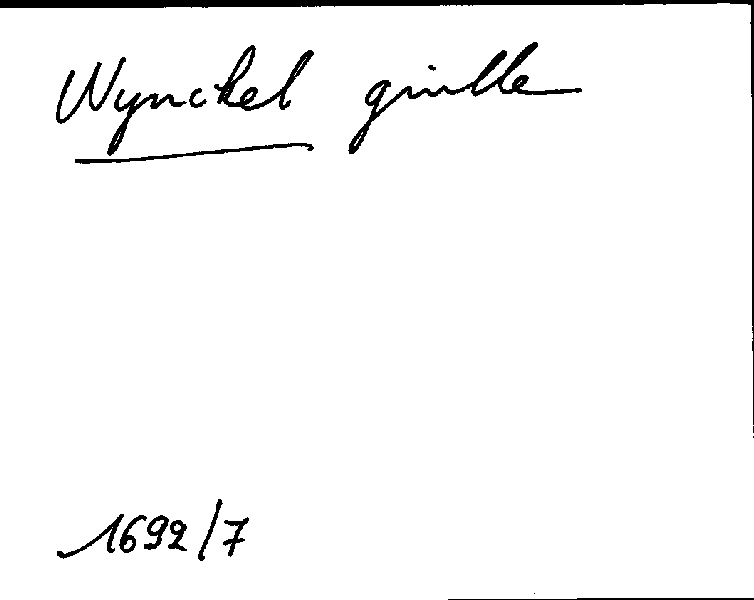 Wynckel guille
1692/7